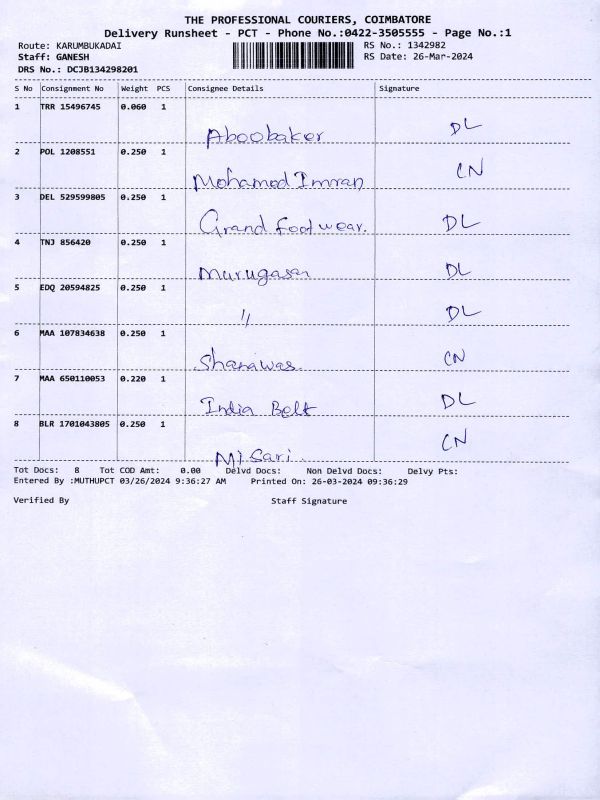 THE PROFESSIONAL COURIERS, COIMBATORE
Delivery Runsheet - PCT - Phone No.:0422-3505555 - Page No.:1
Route: KARUMBUKADAI RS No.: 1342982
Staff: GANESH RS Date: 26-Mar-2024
DRS No.: DCJB134298201
S No Consignment No Weight PCS Consignee Details Signature
1 TRR 15496745 0.060 1 Aboobaker DL
2 POL 1208551 0.250 1 Mohamed Imran CN
3 DEL 529599805 0.250 1 Grand Foot wear. DL
4 TNJ 856420 0.250 1 Murugasan DL
5 EDQ 20594825 0.250 1 〃 DL
6 MAA 107834638 0.250 1 Shanawas. CN
7 MAA 650110053 0.220 1 India Belt DL
8 BLR 1701043805 0.250 1 CN
Tot Docs: 8 Tot COD Amt: 0.00 Delvd Docs: Non Delvd Docs: Delvy Pts:
Entered By :MUTHUPCT 03/26/2024 9:36:27 AM Printed On: 26-03-2024 09:36:29
Verified By Staff Signature